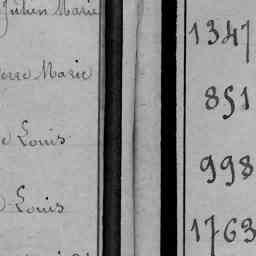 Julien Marie
1347
Marie
851
Louis
998
Louis
1763